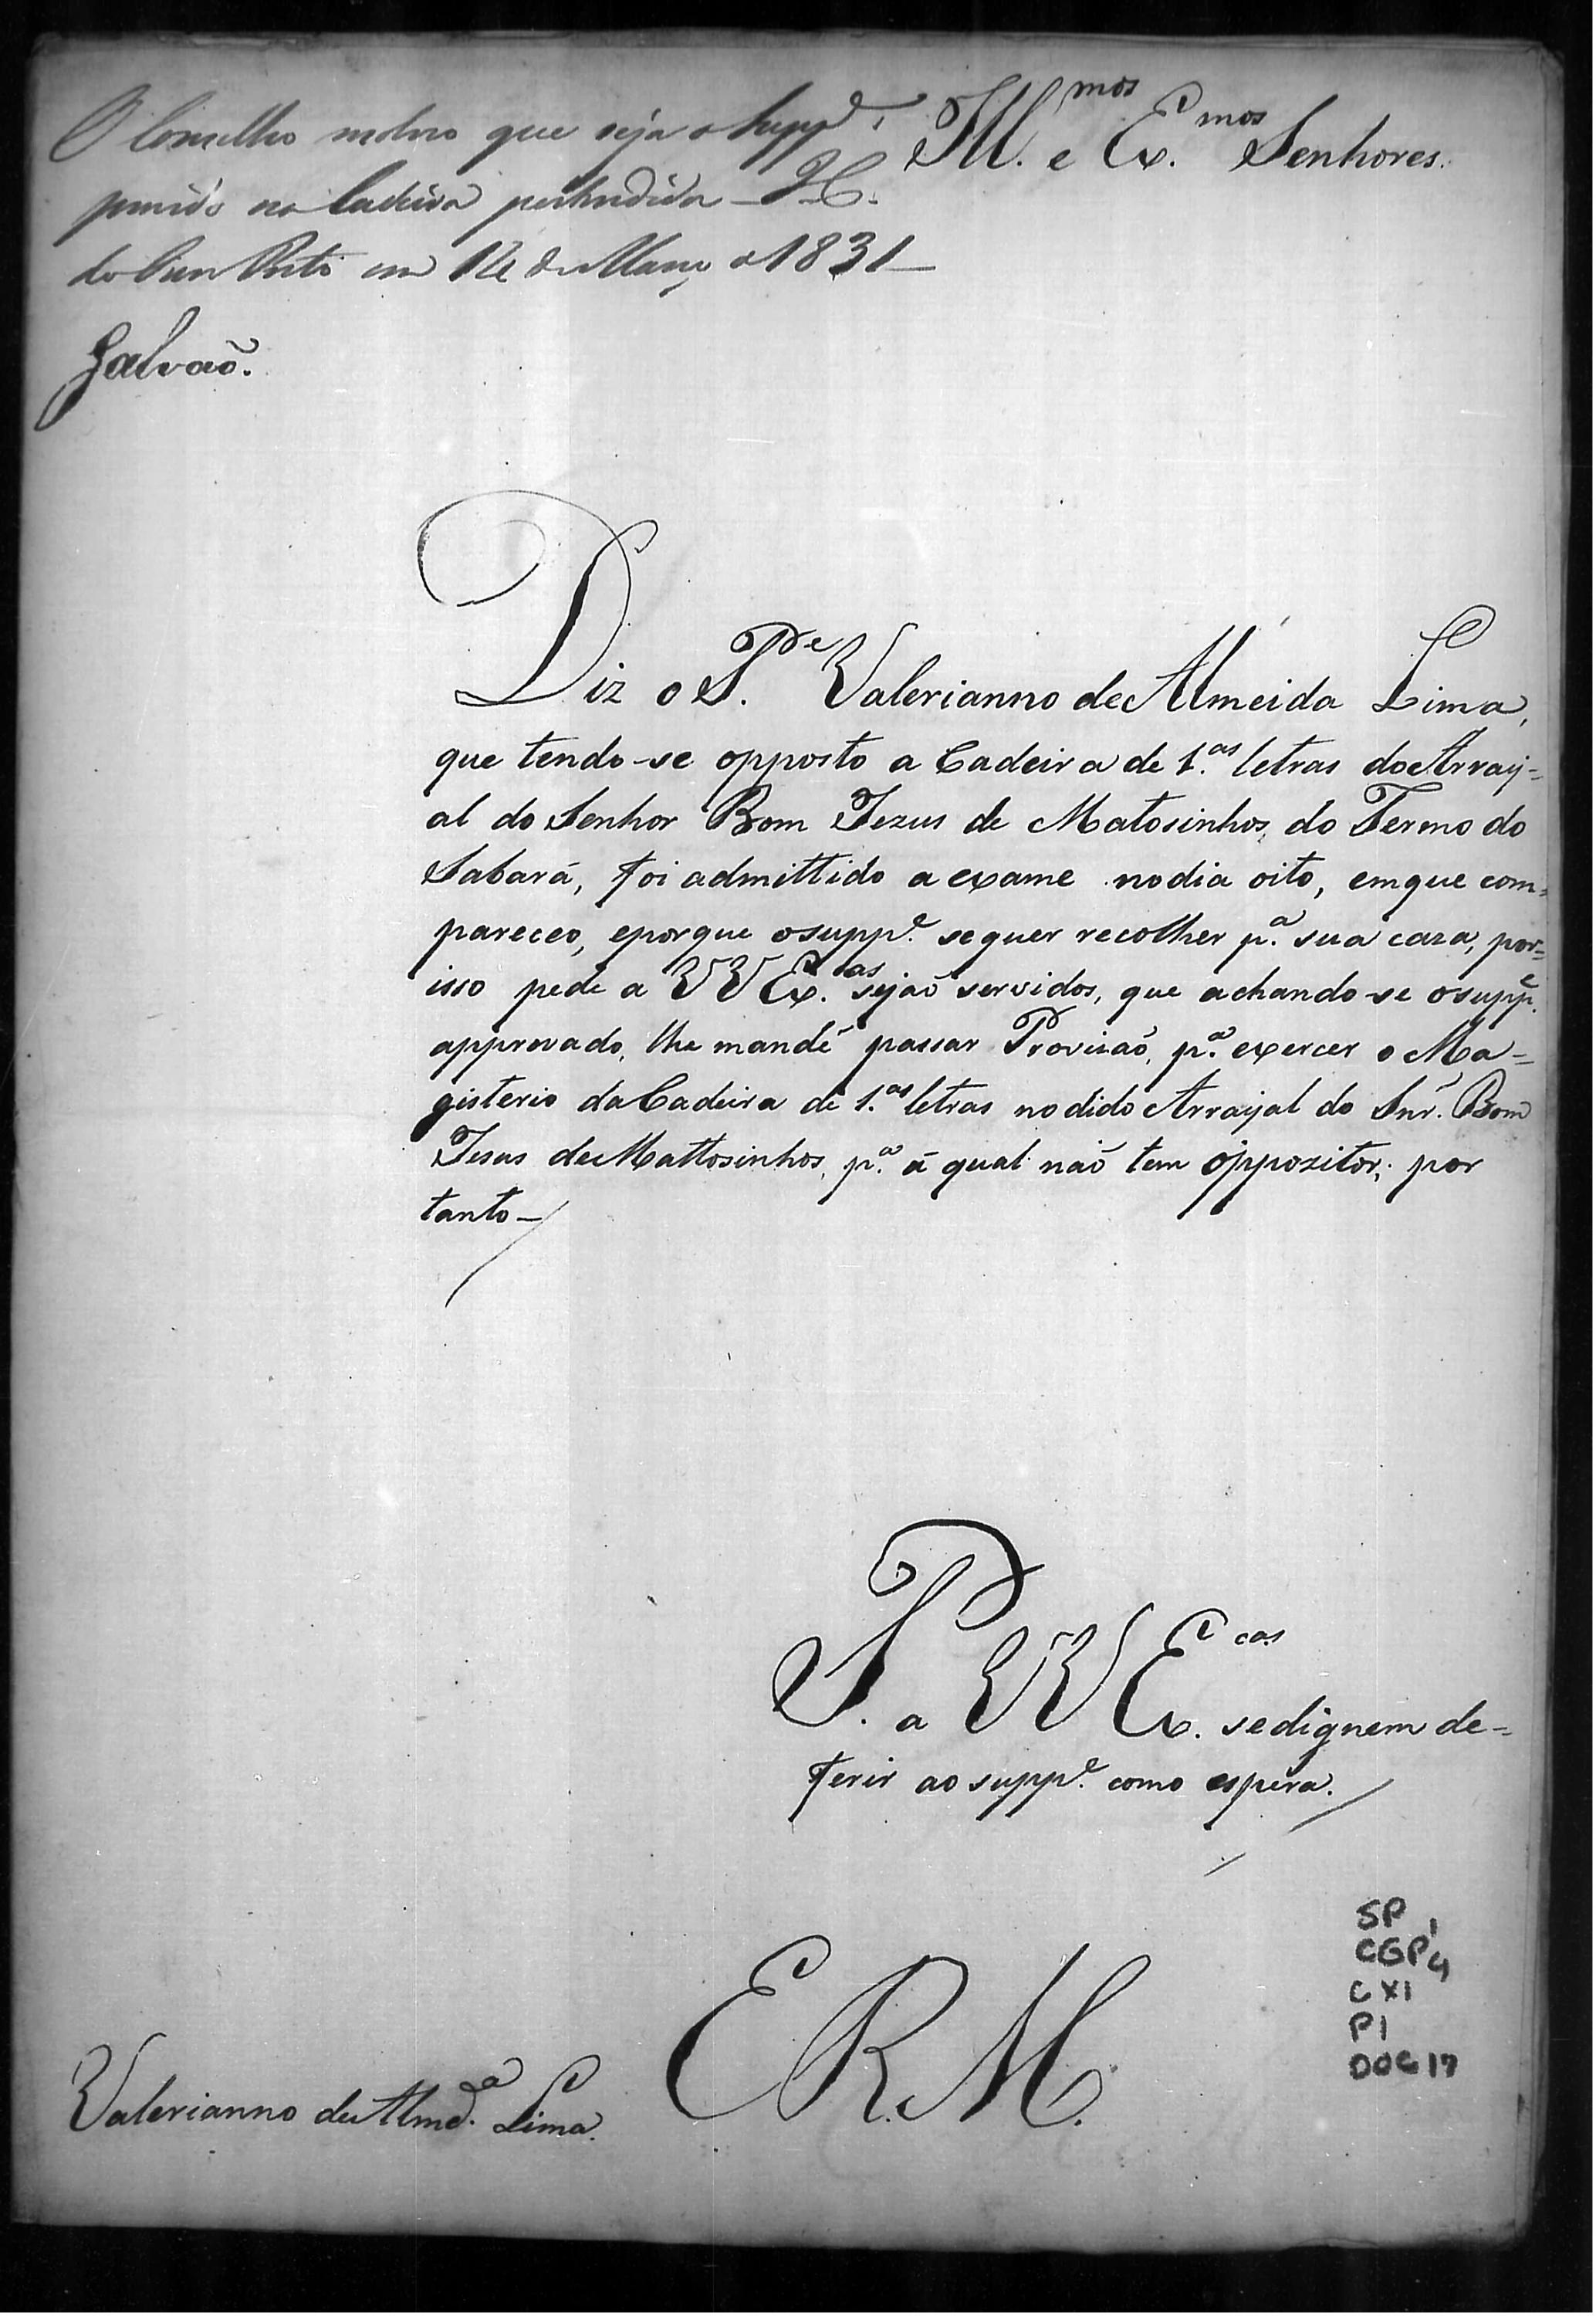 O Conselho resolveo que seja o Supp.e
Ill.mos e Ex.mos Senhores.
provido na Cadeira pertendida
do Ouro Preto em 12 de Março de 1831
Galvaõ.
Diz o P.e Valerianno de Almeida Lima,
que tendo-se opposto a Cadeira de 1.as letras do Array-
al do Senhor Bom Jezus de Matosinhos, do Termo do
Sabará, foi admittido a exame no dia oito, em que com-
pareceo, e porque o supp.e se quer recolher p.a sua caza, por-
isso pede a VV Ex.as sejaõ servidos, que achando-se o supp.e
approvado, lhe mande passar Provizaõ, p.a exercer o Ma-
gisterio da Cadeira de 1.as letras no dido Arrayal do Snr. Bom
Jesus de Mattosinhos, p.a á qual naõ tem oppozitor; por
tanto-
P. a VV Ex.cas se dignem de-
ferir ao supp.e como espera.
E R. M.
Valerianno de Almd.a Lima.
SP 1
CGP 4
C XI
P 1
DOC 17